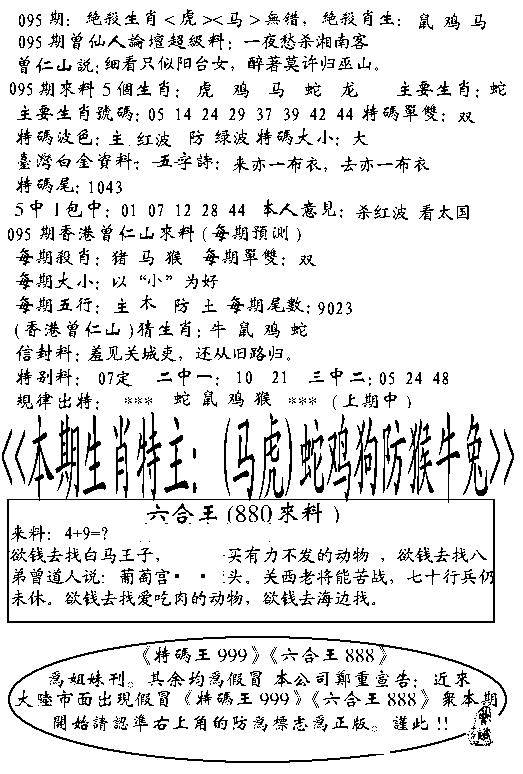 095期：絶殺生肖<虎><马>無錯，絶殺肖生：鼠 鸡 马
095期曾仙人論壇超級料：一夜愁杀湘南客
曾仁山説：细看只似阳台女，醉著莫许归巫山。
095期來料5個生肖：虎 鸡 马 蛇 龙 主要生肖：蛇
主要生肖號碼：05 14 24 29 37 39 42 44 特碼單雙：双
特碼波色：主 红波 防 绿波 特碼大小：大
臺灣白金資料：五字詩：来亦一布衣，去亦一布衣
特碼尾：1043
5中1包中：01 07 12 28 44 本人意見：杀红波 看太国
095期香港曾仁山來料(每期預測)
每期殺肖：猪 马 猴 每期單雙：双
每期大小：以“小”为好
每期五行：主 木 防 土 每期尾數：9023
(香港曾仁山)猜生肖：牛 鼠 鸡 蛇
信封料：羞见关城吏，还从旧路归。
特别料： 07定 二中一：10 21 三中二：05 24 48
規律出特： *** 蛇 鼠 鸡 猴 *** (上期中)
《本期生肖特主：(马虎)蛇鸡狗防猴牛兔》
六合王(880來料)
来料：4+9=?
欲钱去找白马王子， 买有力不发的动物，欲钱去找八
弟曾道人说：葡萄宫 头。关西老将能苦战，七十行兵仍
未休。欲钱去找爱吃肉的动物，欲钱去海边找。
《特碼王999》《六合王888》
爲姐妹刊。其余均爲假冒 本公司鄭重宣告：近來
大陸市面出現假冒《特碼王999》《六合王888》衆本期
開始請認準右上角的防爲標志爲正版。謹此!!